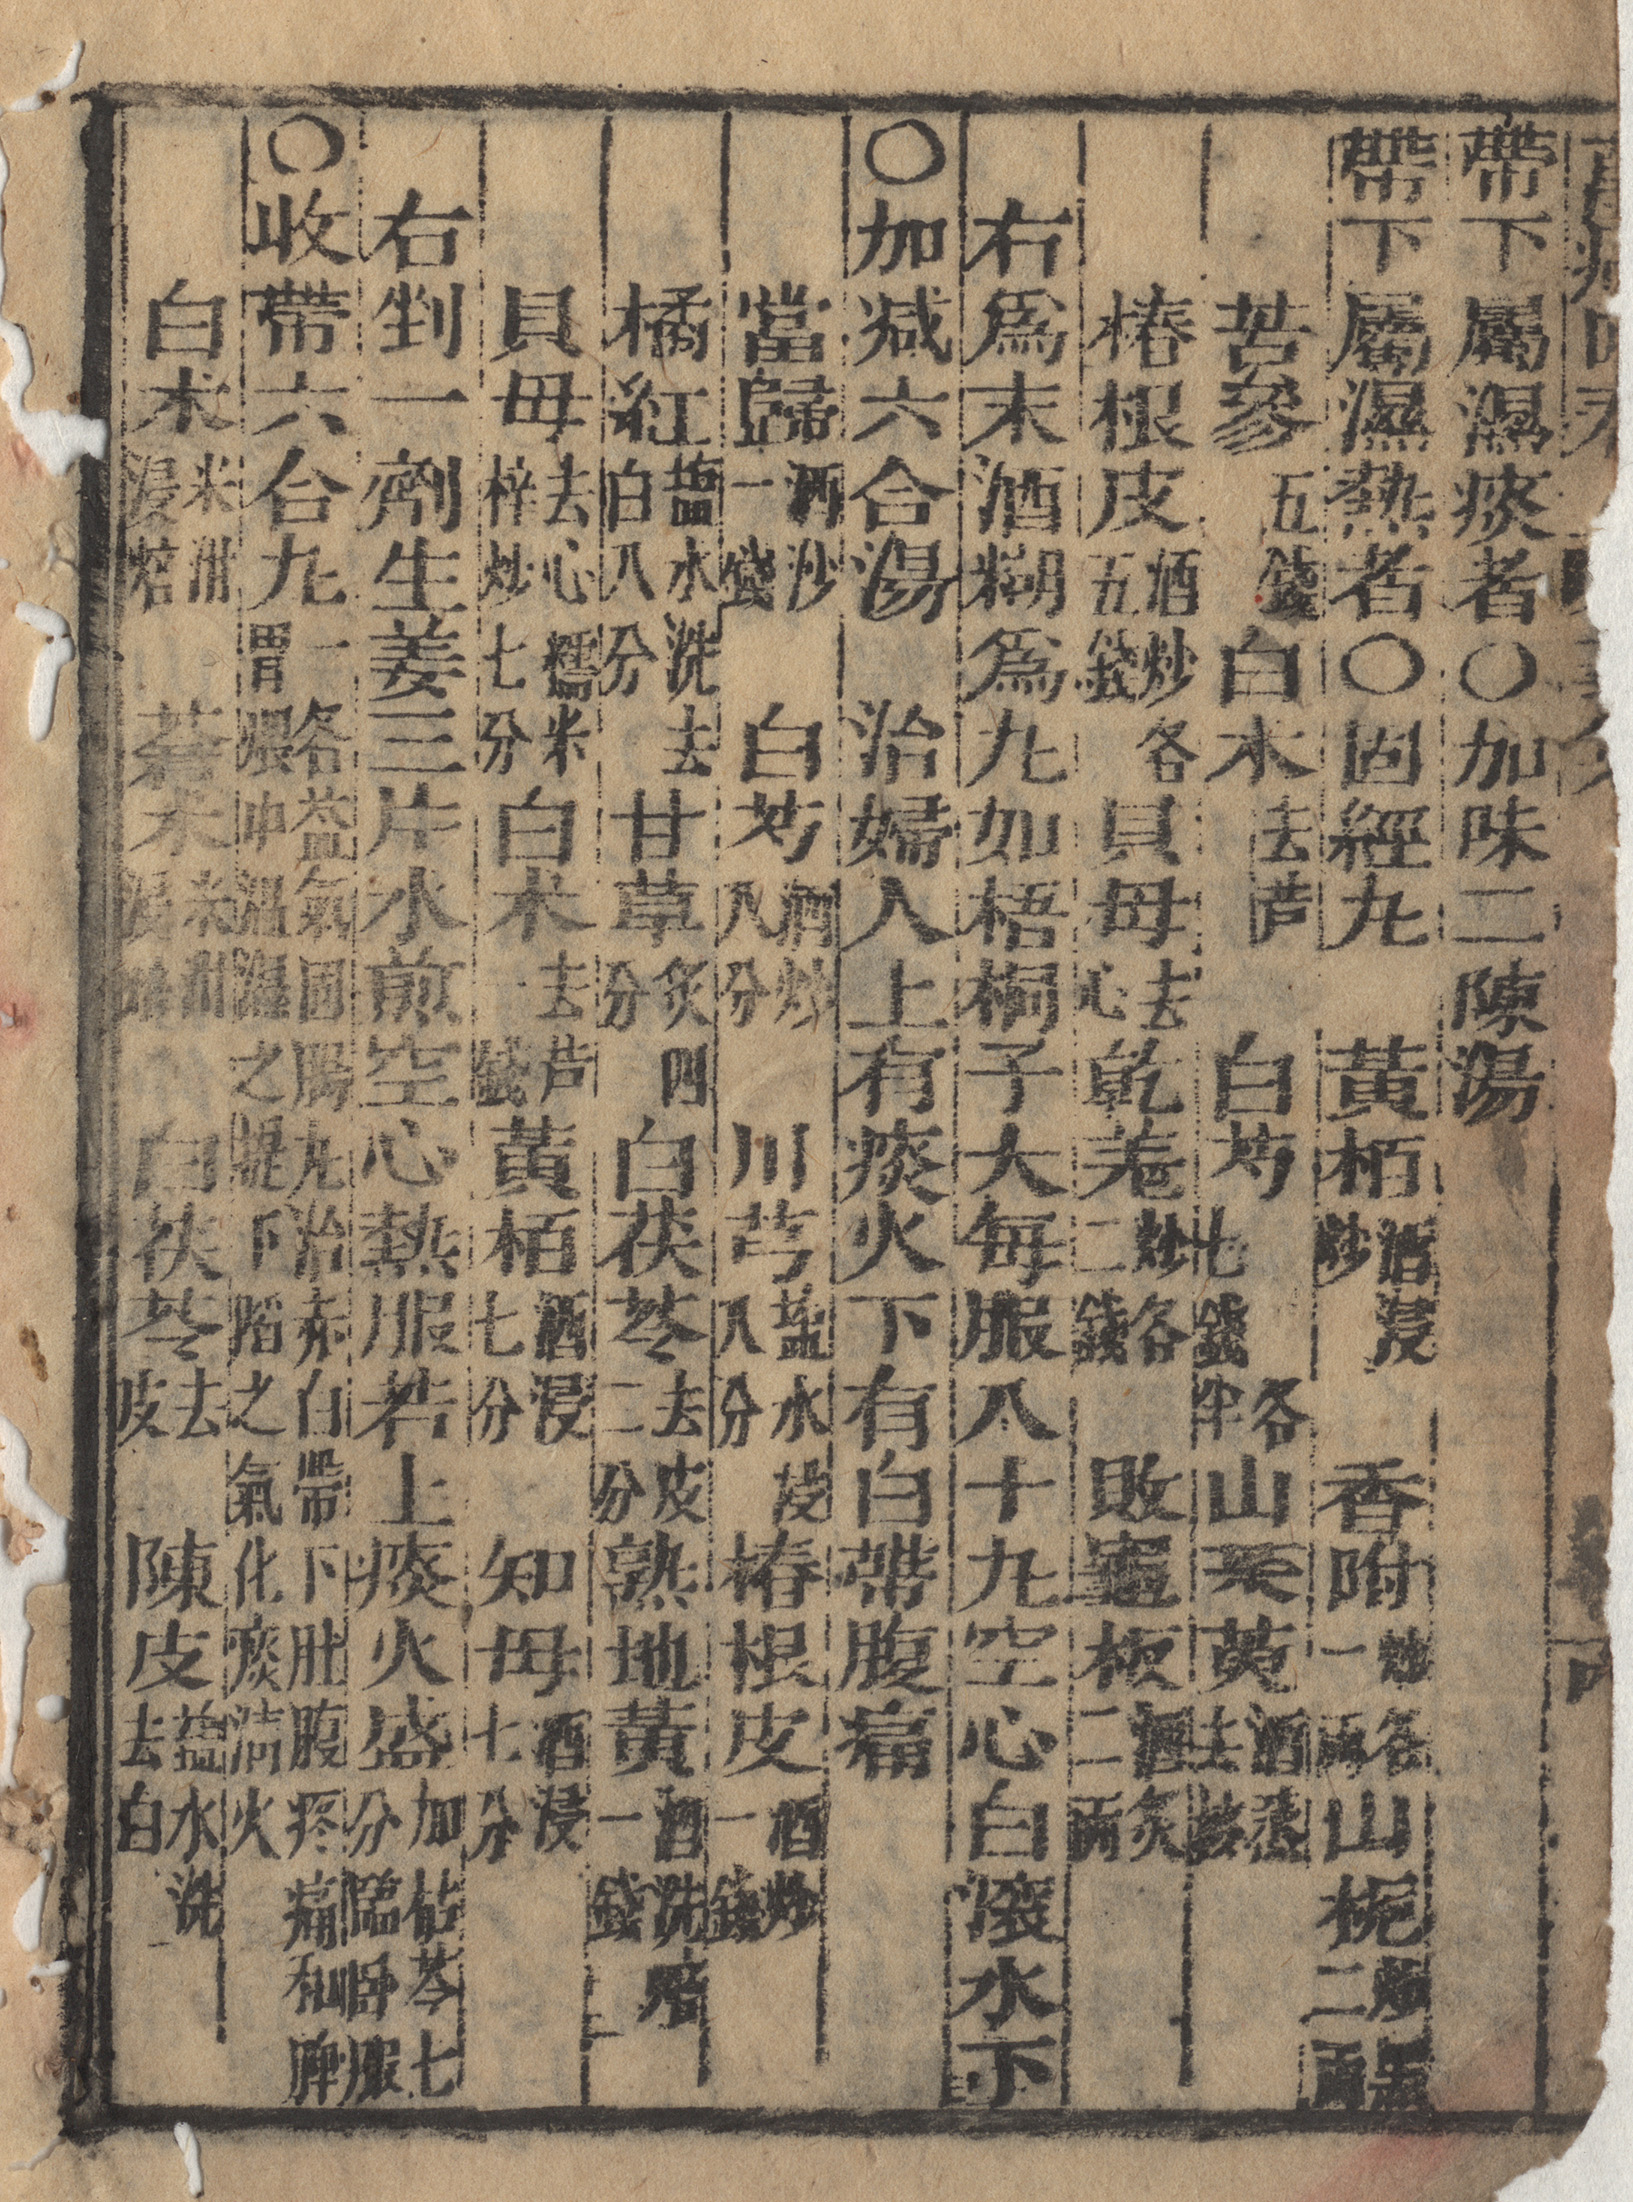 帶下屬濕痰者○加味二陳湯
帶下屬濕熱者○固經丸 黃柏酒浸炒 香附炒一兩各山梔二兩炒黑
苦參五錢白朮去芦 白芍七錢半各山茱萸酒蒸去核
椿根皮酒炒五錢各貝母去心乾姜炒二錢各 敗龜板酒炙二兩
右為末酒糊為丸如梧桐子大每服八十丸空心白滾水下
○加減六合湯 治婦人上有痰火下有白帶腹痛
當歸酒炒一錢 白芍酒炒八分 川芎塩水浸八分椿根皮酒炒一錢
橘紅塩水洗去白八分甘草炙四分白茯苓去皮二分熟地黃酒洗一錢
貝母去心糯米梓炒七分白朮去芦一錢黃柏酒浸七分 知母酒浸七分
右剉一劑生姜三片水煎空心熱服若上痰火盛加枯芩七分臨卧服
○收帶六合丸一名益氣固腸丸治赤白帶下肚腹疼痛和脾胃煖中溫濕之提下陷之氣化痰清火
白朮米泔浸焙 蒼朮米泔浸 白茯苓去皮 陳皮塩水洗去白